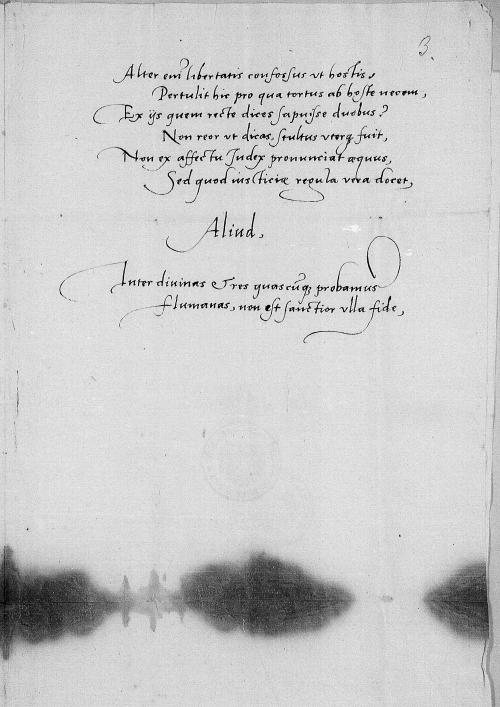 3.
Alter em̃ libertatis confossus vt hostis,
Pertulit hic pro qua tortus ab hoste necem,
Ex ijs quem recte dices sapuisse duobus?
Non reor vt dicas, stultus vterq fuit,
Non ex affectu Judex pronunciat æquus,
Sed quod iusticiæ regula vera docet,
Aliud,
Inter divinas & res quascũq probamus
Humanas, non est sanctior vlla fide,